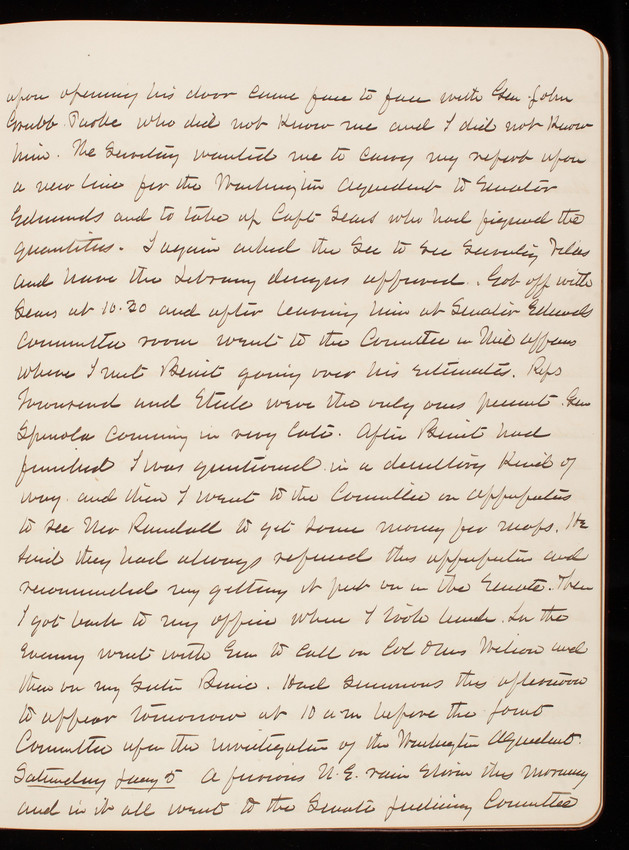 upon opening his door came face to face with Gen. John
Grubb Parke who did not know me and I did not know
him. The Secretary wanted me to carry my report upon
a new line for the Washington Aqueduct to Senator
Edmunds and to take up Capt Sears who had figured the
quantities. I again asked the Sec to see Secretary Vilas
and have the Library designs approved. Got off with
Sears at 10.30 and after leaving him at Senator Edmunds
Committee room went to the Committee on Mil affairs
where I met Benét going over his estimates. Reps
Townsend and Steele were the only ones present. Gen
Spinola coming in very late. After Benét had
finished I was questioned in a desultory kind of
way and then I went to the Committee on appropriations
to see Mr Randall to get some money for maps. He
said they had always refused this appropriation and
recommended my getting it put on in the Senate. Then
I got back to my office where I took lunch. In the
Evening went with Em to call on Col & Mrs Wilson and
then on my Sister Bessie. Had summons this afternoon
to appear tomorrow at 10 am before the Joint
Committee upon the investigation of the Washington Aqueduct.
Saturday Jany 5 A furious N.E. rain storm this morning
and in it all went to the Senate Judiciary Committee